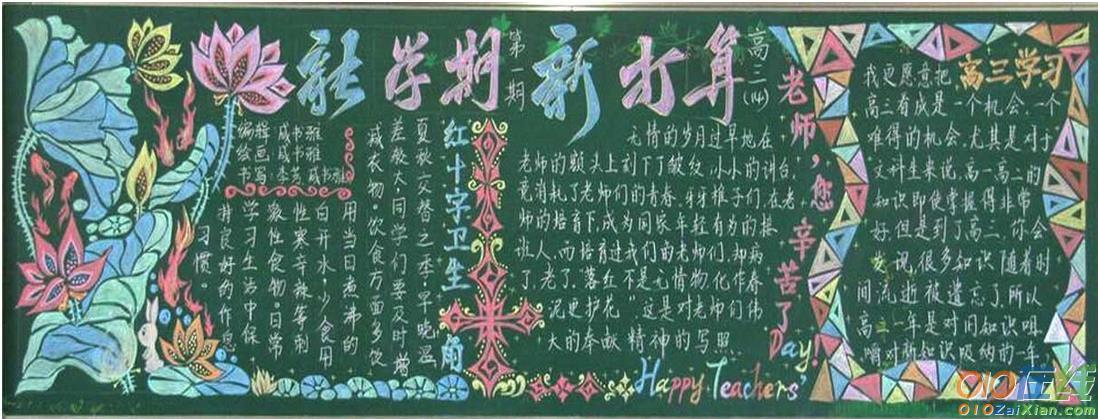 新学期新打算
第一期
高三(14)
编辑:咸书雅
绘画:咸书雅
书写:李芸 咸书雅
红十字卫生角
夏秋交替之季,早晚温
差教大,同学们要及时增
减衣物。饮食方面多饮
用当日煮沸的
白开水,少食用
性寒辛辣等刺
激性食物。日常
学习生活中保
持良好的作息
习惯。
无情的岁月过早地在
老师的额头上刻下了皱纹,小小的讲台,
竟消耗了老师们的青春,牙牙稚子们,在老
师的培育下,成为国家年轻有为的接
班人,而培育过我们的老师们,却病
了,老了,“落红不是无情物,化作春
泥更护花”,这是对老师们伟
大的奉献精神的写照...
老师,您辛苦了
Happy Teachers' Day!
高三学习
我更愿意把
高三看成是一个机会,一个
难得的机会,尤其是对于
文科生来说,高一高二的
知识即使掌握得非常
好,但是到了高三,你会
发现,很多知识随着时
间流逝被遗忘了,所以
高三一年是对旧知识咀
嚼对新知识吸纳的一年.
010在线
010ZaiXian.com